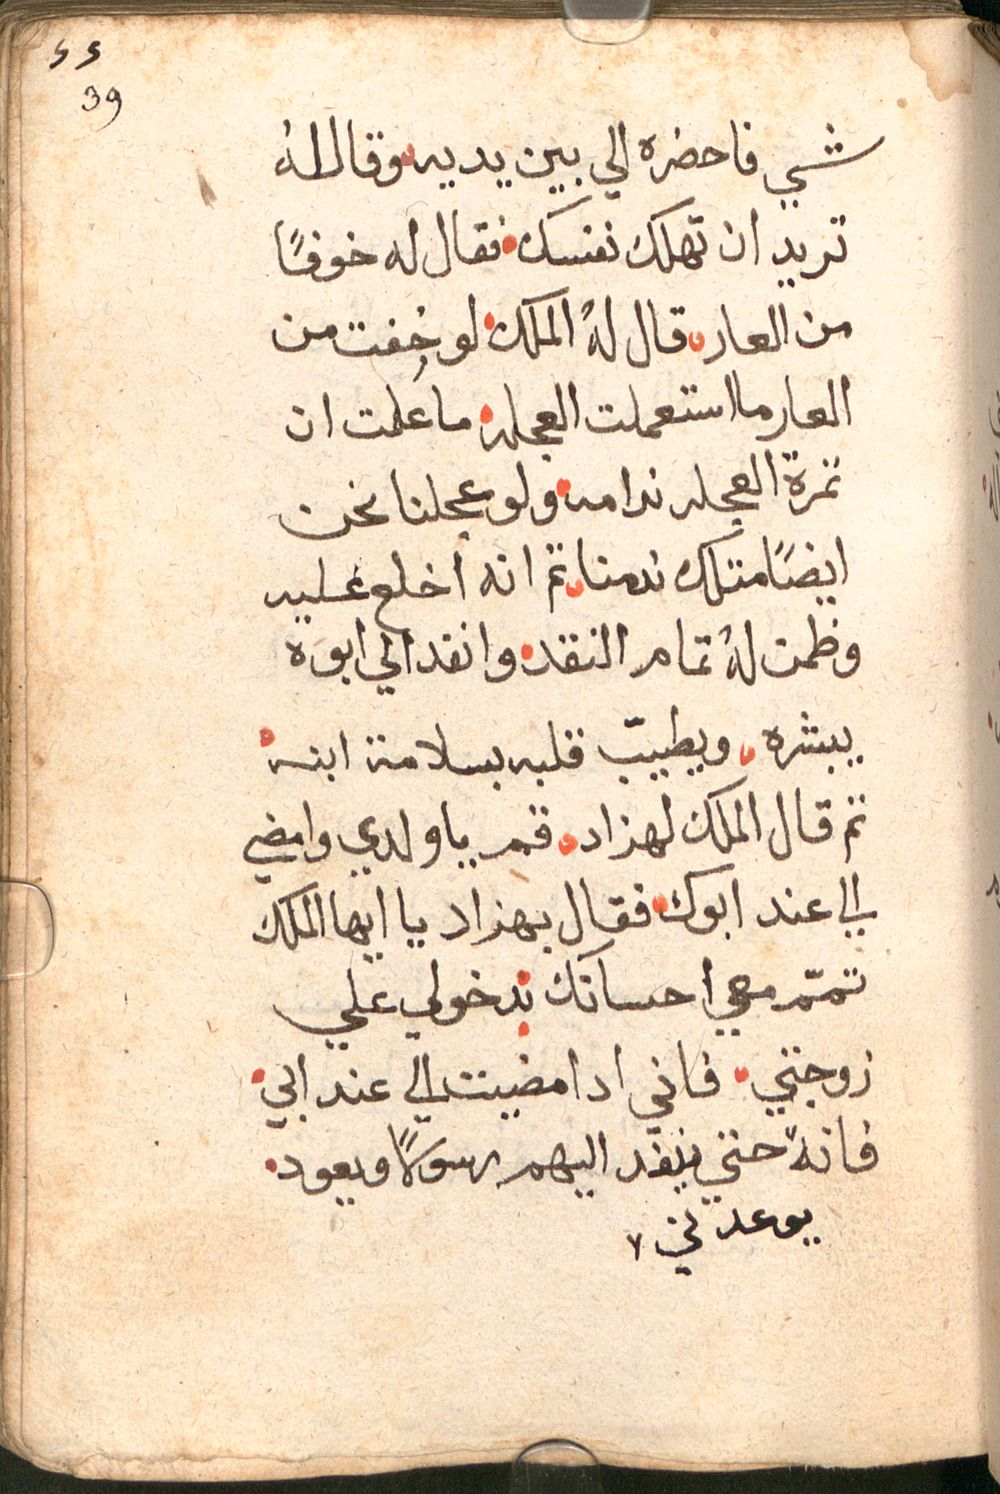 ٤٤
39
شي فاحضره الي بين يديه وقال لهُ
تريد ان تهلك نفسك فقال له خوفًا
من العار قال لهُ الملك لو خِفت من
العار ما استعملت العجله ما علمت ان
تمرة العجله ندامه ولو عجلنا نحن
ايضًا متلك ندمنا تم انه اخلع عليه
وظمن لهُ تمام النقد وانفد الي ابوه
يبشره ويطيبّ قلبه بسلامة ابنه
تم قال الملك لهزاد قم ياولدي وامضي
الي عند ابوك فقال بهزاد يا ايها الملك
تممّ معي احسانك بدخولي علي
زوجتي فاني ادا مضيت الي عند ابي
فانهُ حتي ينفد اليهم رسولًا ويعود
يوعدني ٧